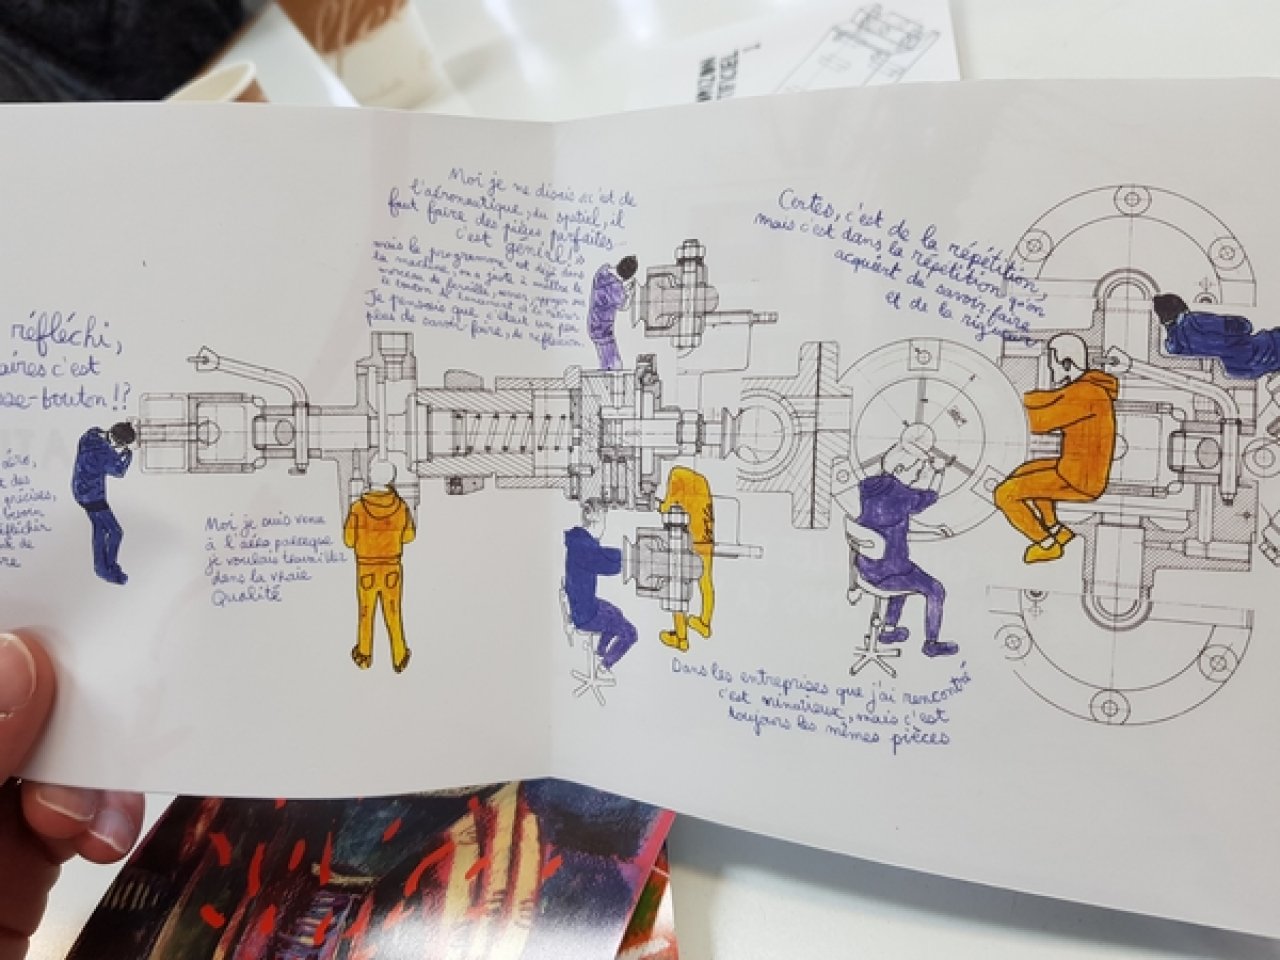 réfléchi,
aires c'est
sse-bouton!?
aéro,
t des
précises,
besoin
réfléchir
de
re
Moi je suis venu
à l'aéro parceque
je voulais travailler
dans la vraie
Qualité
Moi je me disais c'est de
l'aéronautique, du spatial, il
faut faire des pièces parfaites
c'est génial!
mais le programme est déjà dans
la machine, on a juste à mettre le
morceau de ferraille, appuyer sur
le bouton et
Je pensais que c'était un peu
plus de savoir faire, de réflexion.
Dans les entreprises que j'ai rencontré
c'est minutieux, mais c'est
toujours les mêmes pièces
Certes, c'est de la répétition,
mais c'est dans la répétition qu'on
acquiert du savoir-faire
et de la rigueur